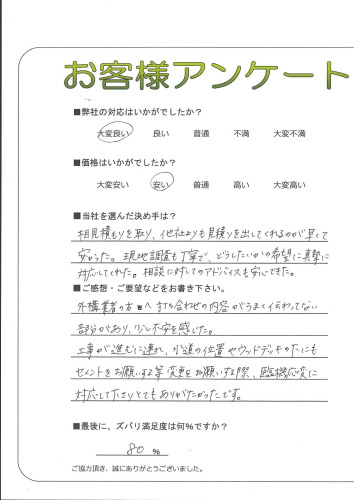 お客様アンケート
■弊社の対応はいかがでしたか？
大変良い 良い 普通 不満 大変不満
■価格はいかがでしたか？
大変安い 安い 普通 高い 大変高い
■当社を選んだ決め手は？
相見積もりを取り、他社よりも見積りを出してくれるのが早くて
安かった。現地調査も丁寧で、どうしたいかの希望に真摯に
対応してくれた。相談に対してのアドバイスも安心できた。
■ご感想・ご要望などをお書き下さい。
外構業者の方へ打ち合わせの内容がうまく伝わってない
部分があり、少し不安を感じた。
工事が進むに連れ、水道の位置やウッドデッキの下にも
セメントをお願いする等 変更をお願いする際、臨機応変に
対応して下さりとてもありがたかったです。
■最後に、ズバリ満足度は何％ですか？
80 %
ご協力頂き、誠にありがとうございました。